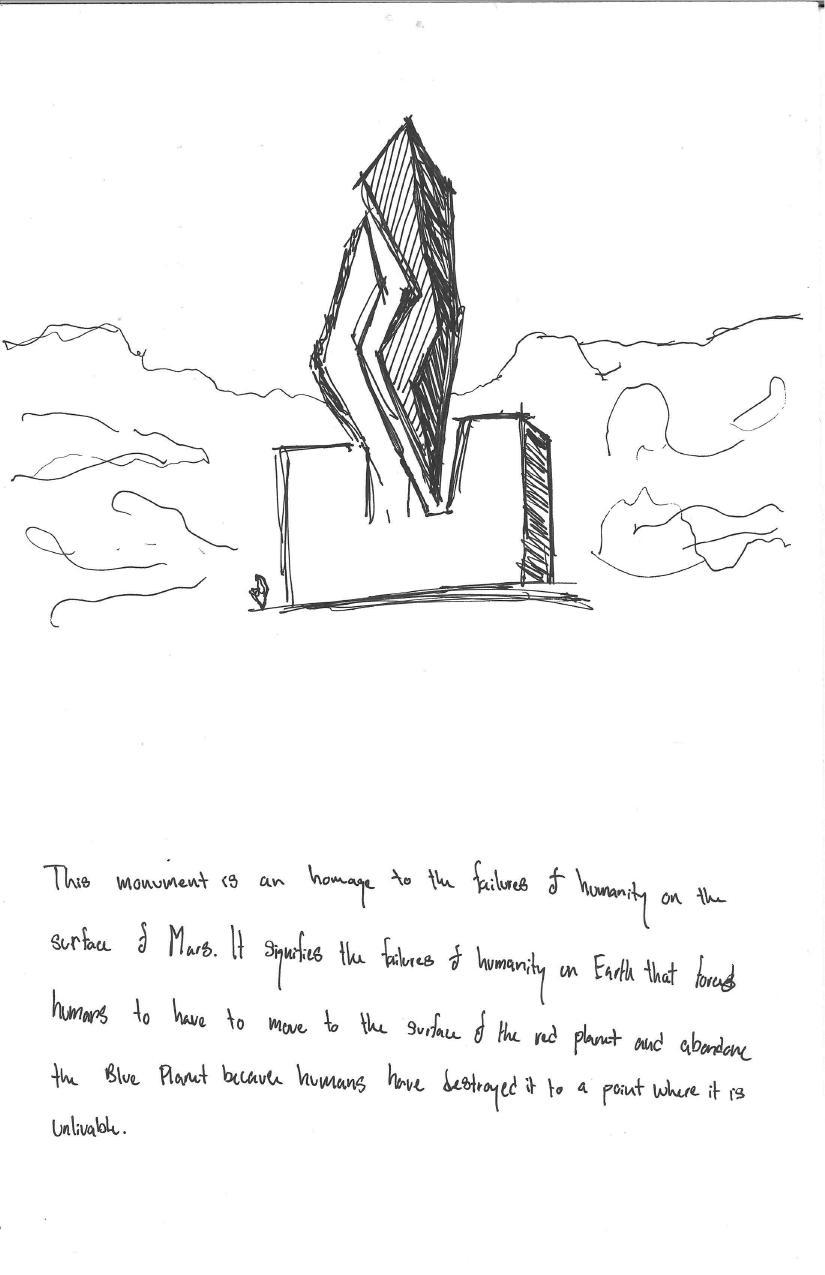 This monument is an homage to the failures of humanity on the
surface of Mars. It signifies the failures of humanity on Earth that forced
humans to have to move to the surface of the red planet and abandone
the Blue Planet because humans have destroyed it to a point where it is
unlivable.